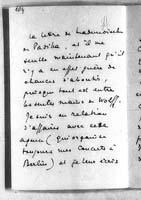 la lettre de Mademoiselle
de Padilla, et il me
semble maintenant qu'il
n'y a en effet guère de
chances d'aboutir,
puisque tout est entre
les seules mains de Wolff.
Je suis en relation
d'affaires avec cette
agence (qui organise
toujours mes Concerts à
Berlin) et je leur